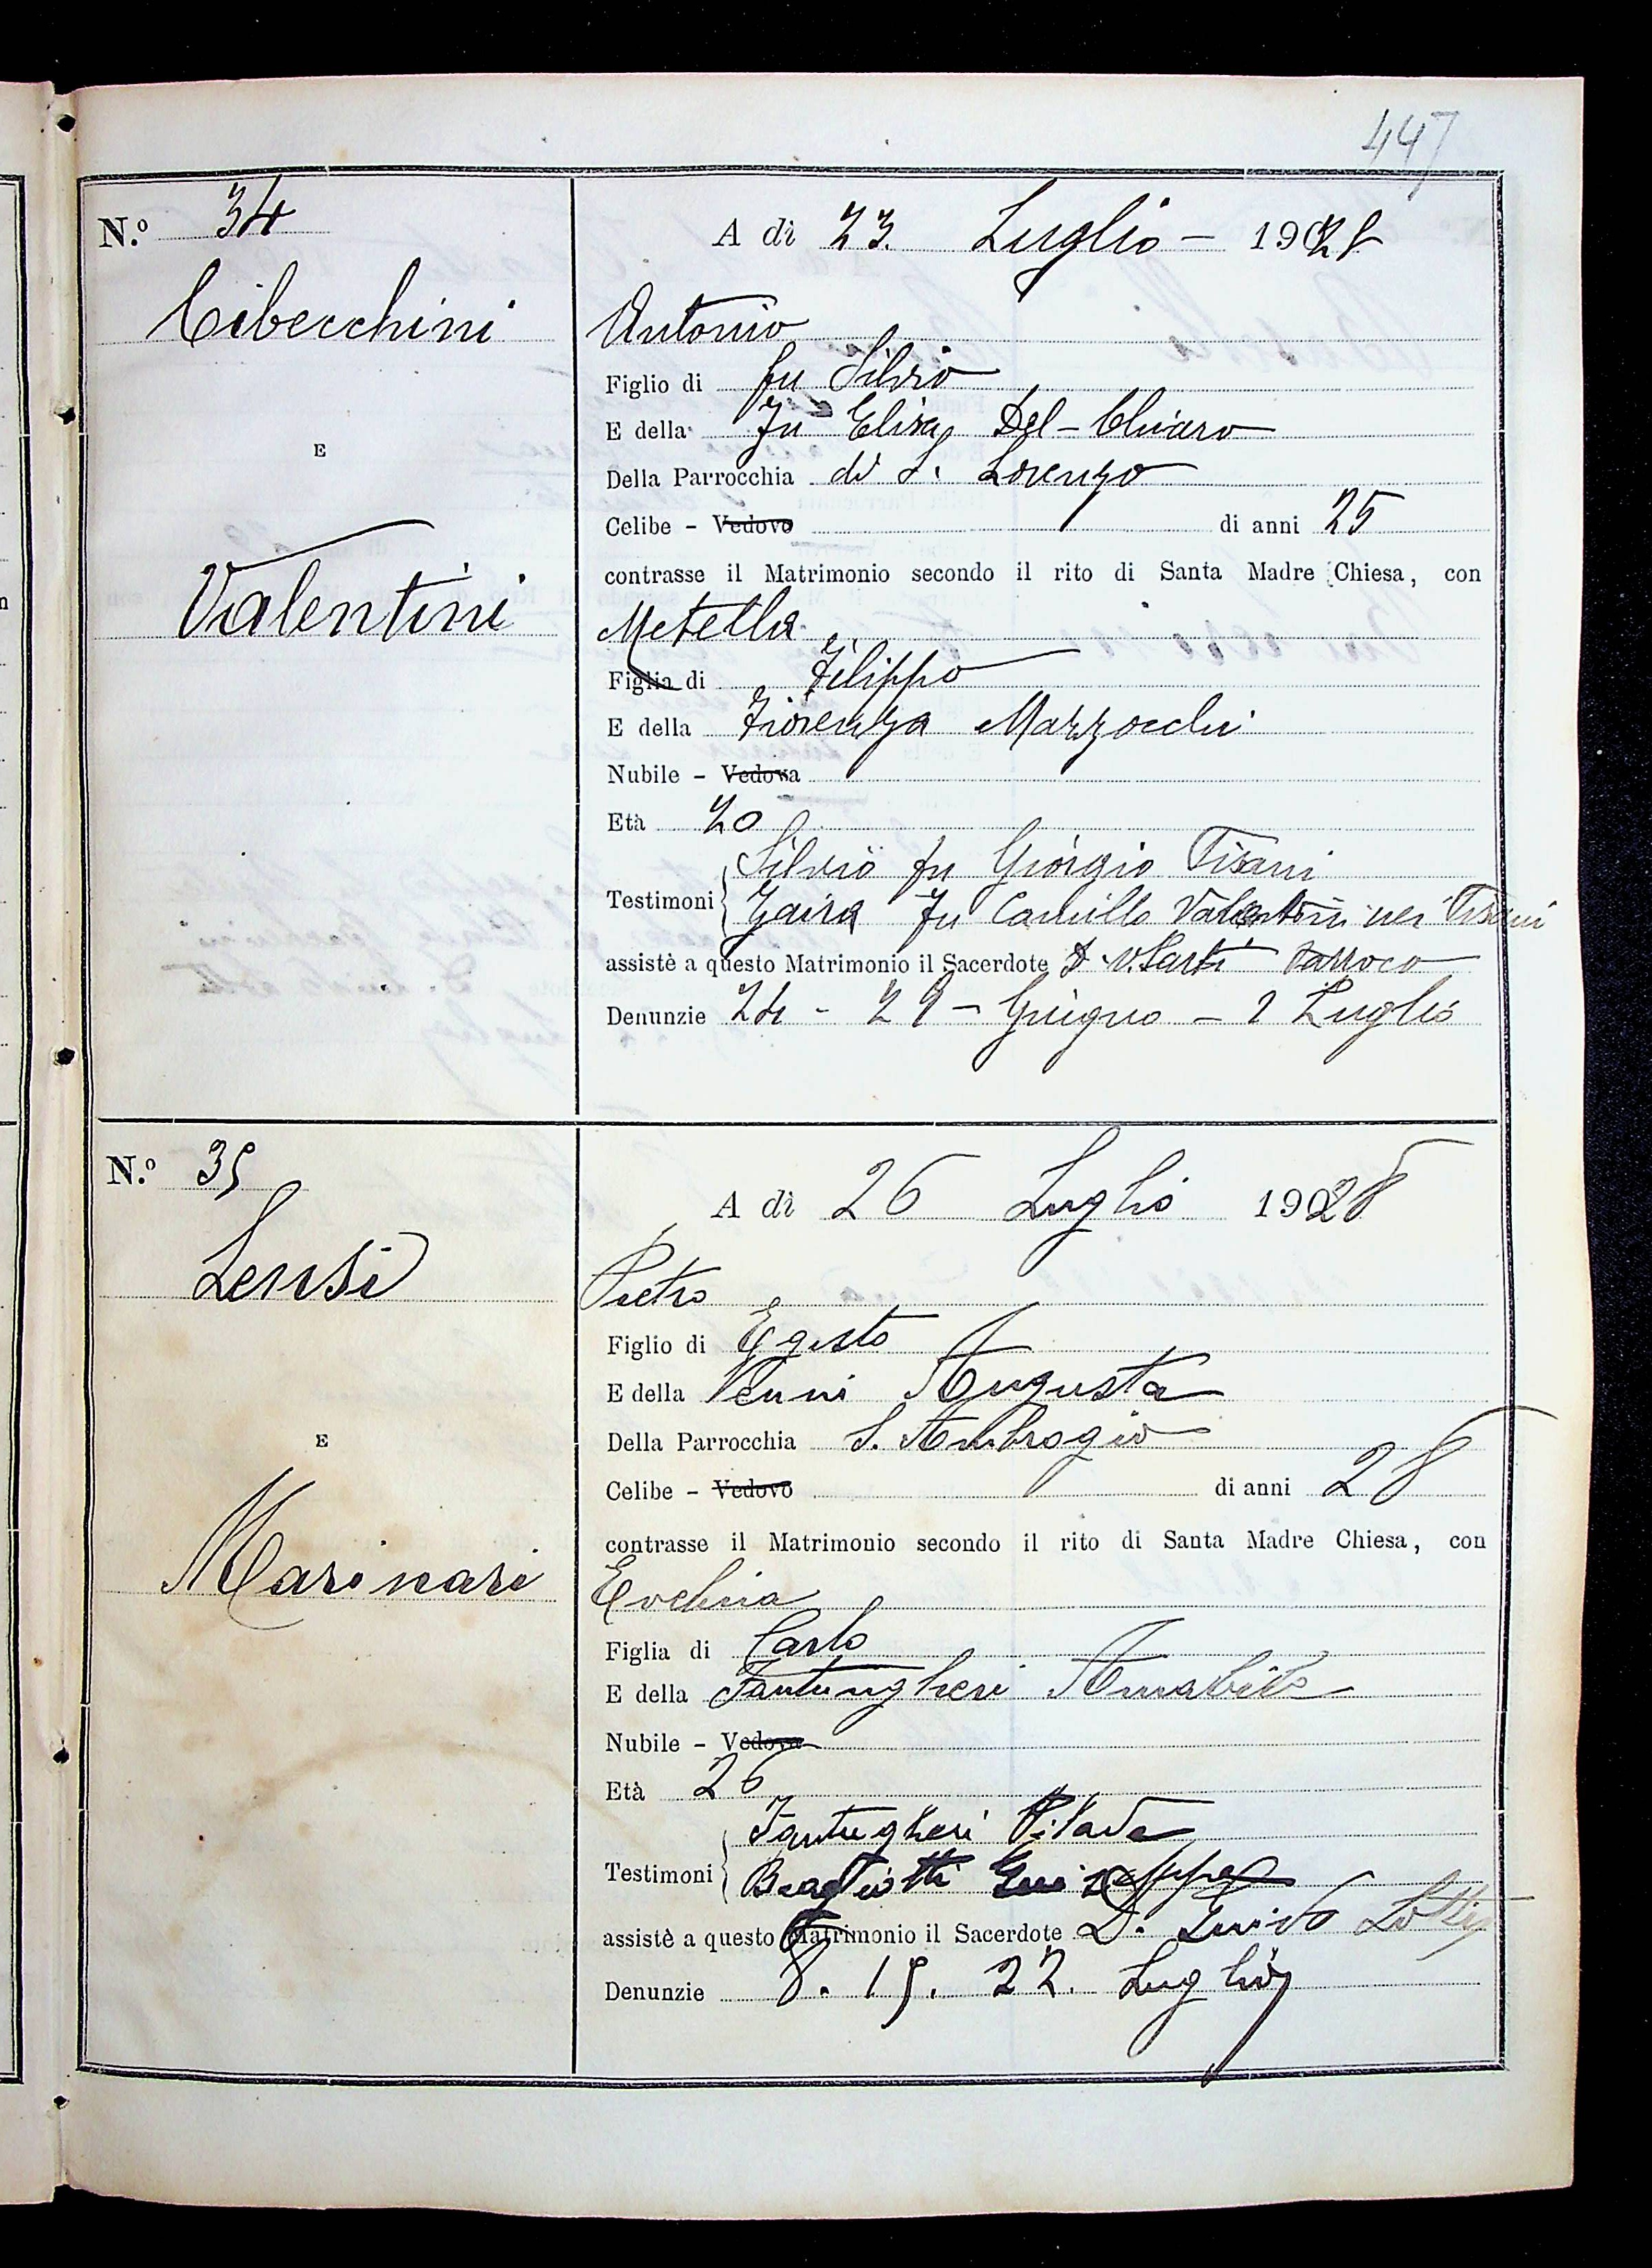 447
N.º 34
A dì 23. Luglio - 1928
Cibecchini
Antonio
Figlio di fu Silvio
E della fu Elisa Del-Chiaro
Della Parrocchia di S. Lorenzo
E
Celibe - Vedovo di anni 25
contrasse il Matrimonio secondo il rito di Santa Madre Chiesa, con
Valentini
Metella
Figlia di Filippo
E della Fiorenza Mazzocchi
Nubile - Vedova
Età 20
Testimoni Silvio fu Giorgio Tisani
Zaira fu Camillo Valentini nei Tisani
assistè a questo Matrimonio il Sacerdote Sarti Parroco
Denunzie 24 - 29 - Giugno - 1 Luglio
N.º 35
A dì 26 Luglio 1928
Lensi
Pietro
Figlio di Egisto
E della Venni Augusta
Della Parrocchia S. Ambrogio
E
Celibe - Vedovo di anni 28
contrasse il Matrimonio secondo il rito di Santa Madre Chiesa, con
Marinari
Figlia di Carlo
E della Amabile
Nubile - Vedova
Età 26
Testimoni Pilade
Giuseppe
assistè a questo Matrimonio il Sacerdote D. Guido Lotti
Denunzie 8. 15. 22. Luglio